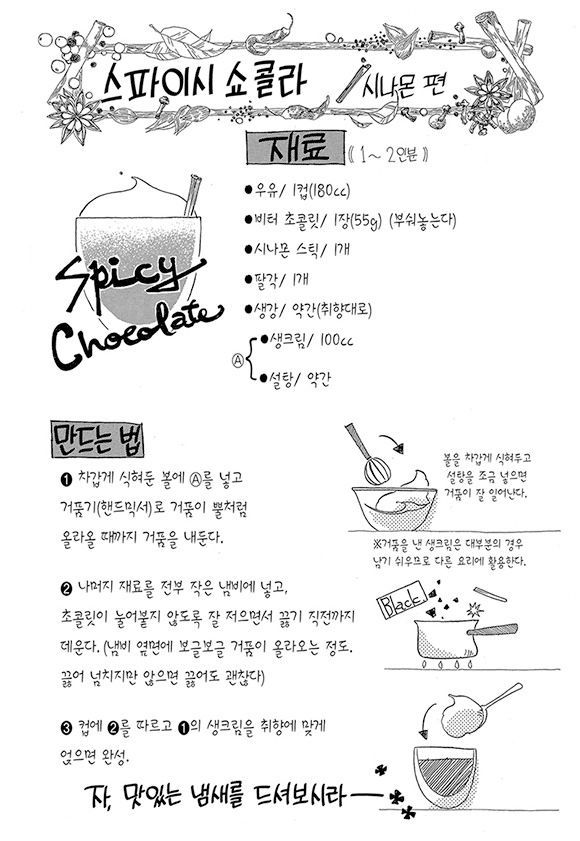 스파이시 쇼콜라 시나몬 편
재료 《 1~2인분 》
●우유/ 1컵(180cc)
●비터 초콜릿/ 1장(55g) (부숴놓는다)
●시나몬 스틱/ 1개
●팔각/ 1개
●생강/ 약간(취향대로)
Ⓐ
●생크림/ 100cc
●설탕/ 약간
Spicy
Chocolate
만드는 법
❶ 차갑게 식혀둔 볼에 Ⓐ를 넣고
거품기(핸드믹서)로 거품이 뿔처럼
올라올 때까지 거품을 내둔다.
볼을 차갑게 식혀두고
설탕을 조금 넣으면
거품이 잘 일어난다.
※거품을 낸 생크림은 대부분의 경우
남기 쉬우므로 다른 요리에 활용한다.
❷ 나머지 재료를 전부 작은 냄비에 넣고,
초콜릿이 눌어붙지 않도록 잘 저으면서 끓기 직전까지
데운다. (냄비 옆면에 보글보글 거품이 올라오는 정도.
끓어 넘치지만 않으면 끓어도 괜찮다)
Black
❸ 컵에 ❷를 따르고 ❶의 생크림을 취향에 맞게
얹으면 완성.
자, 맛있는 냄새를 드셔보시라